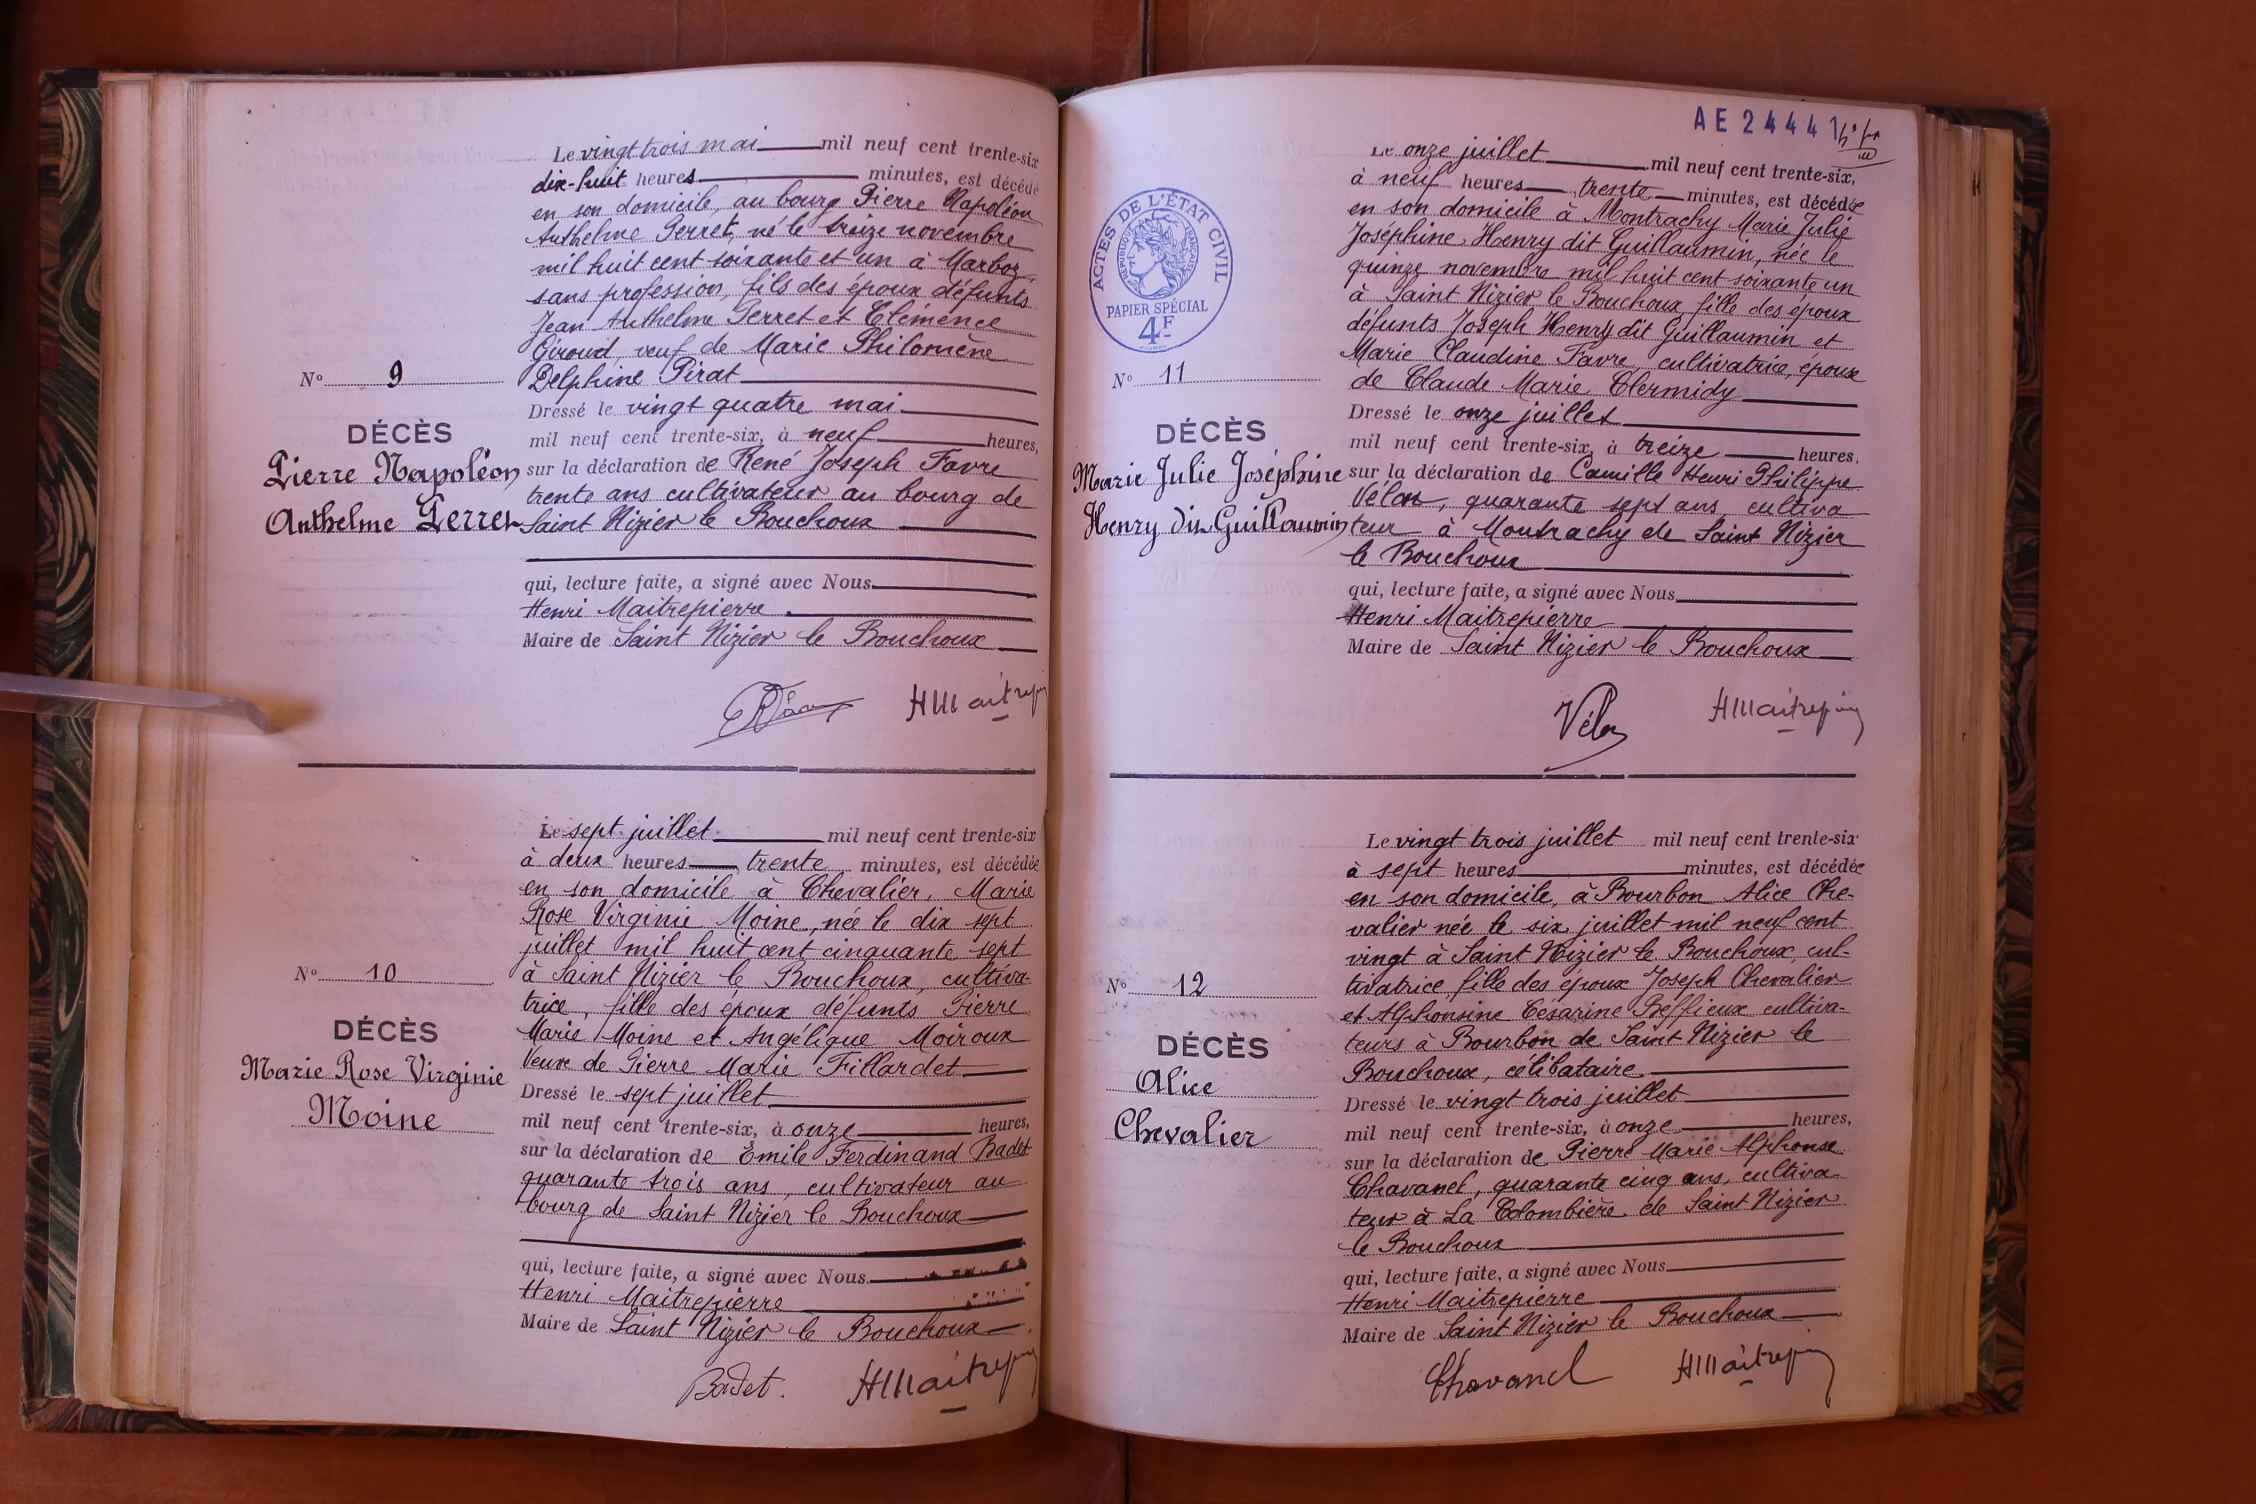 Le vingt trois mai mil neuf cent trente-six
dix-huit heures minutes, est décédé
en son domicile, au bourg Pierre Napoléon
Anthelme Perret, né le treize novembre
mil huit cent soixante et un à Marboz,
sans profession, fils des époux défunts
Jean Anthelme Perret et Clémence
Giroud, veuf de Marie Philomène
Delphine Pirat
Dressé le vingt quatre mai
mil neuf cent trente-six, à neuf heures,
sur la déclaration de René Joseph Favre
trente ans cultivateur au bourg de
Saint Nizier le Bouchoux
qui, lecture faite, a signé avec Nous
Henri Maitrepierre
Maire de Saint Nizier le Bouchoux
N° 9
DÉCÈS
Pierre Napoléon
Anthelme Perret
HMaitrepi
Le sept juillet mil neuf cent trente-six
à deux heures trente minutes, est décédée
en son domicile à Chevalier, Marie
Rose Virginie Moine, née le dix sept
juillet mil huit cent cinquante sept
à Saint Nizier le Bouchoux, cultiva-
trice, fille des époux défunts Pierre
Marie Moine et Angélique Moiroux
Veuve de Pierre Marie Fillardet
Dressé le sept juillet
mil neuf cent trente-six, à onze heures,
sur la déclaration de Emile Ferdinand Badet
quarante trois ans, cultivateur au
bourg de Saint Nizier le Bouchoux
qui, lecture faite, a signé avec Nous
Henri Maitrepierre
Maire de Saint Nizier le Bouchoux
N° 10
DÉCÈS
Marie Rose Virginie
Moine
Badet. HMaitrepi
AE 24441
Le onze juillet mil neuf cent trente-six,
à neuf heures trente minutes, est décédée
en son domicile à Montrachy Marie Julie
Joséphine Henry dit Guillaumin, née le
quinze novembre mil huit cent soixante un
à Saint Nizier le Bouchoux fille des époux
défunts Joseph Henry dit Guillaumin et
Marie Claudine Favre, cultivatrice, épouse
de Claude Marie Clermidy
Dressé le onze juillet
mil neuf cent trente-six, à treize heures,
sur la déclaration de Camille Henri Philippe
Vélon, quarante sept ans, cultiva
teur à Montrachy de Saint Nizier
le Bouchoux
qui, lecture faite, a signé avec Nous
Henri Maitrepierre
Maire de Saint Nizier le Bouchoux
ACTES DE L'ÉTAT CIVIL
RÉPUBLIQUE FRANÇAISE
PAPIER SPÉCIAL
4F
N° 11
DÉCÈS
Marie Julie Joséphine
Henry dit Guillaumin
Vélon HMaitrepi
Le vingt trois juillet mil neuf cent trente-six
à sept heures minutes, est décédée
en son domicile, à Bourbon Alice Che-
valier née le six juillet mil neuf cent
vingt à Saint Nizier le Bouchoux, cul-
tivatrice fille des époux Joseph Chevalier
et Alphonsine Césarine Beffieux cultiva-
teurs à Bourbon de Saint Nizier le
Bouchoux, célibataire
Dressé le vingt trois juillet
mil neuf cent trente-six, à onze heures,
sur la déclaration de Pierre Marie Alphonse
Chavanel, quarante cinq ans, cultiva-
teur à La Colombière de Saint Nizier
le Bouchoux
qui, lecture faite, a signé avec Nous
Henri Maitrepierre
Maire de Saint Nizier le Bouchoux
N° 12
DÉCÈS
Alice
Chevalier
Chavanel HMaitrepi